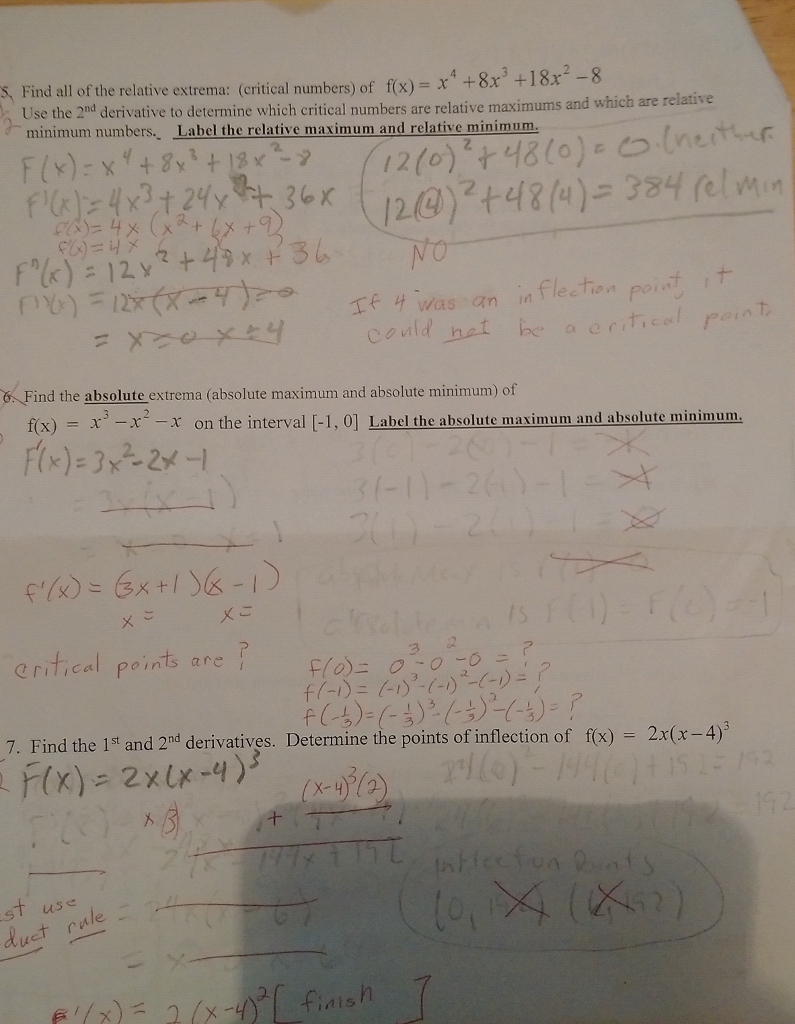 5. Find all of the relative extrema: (critical numbers) of f(x) = x⁴ +8x³ +18x² −8
Use the 2nd derivative to determine which critical numbers are relative maximums and which are relative
minimum numbers. Label the relative maximum and relative minimum.
F(x) = x⁴ + 8x³ + 18x² - 8
F'(x) = 4x³ + 24x² + 36x
f'(x) = 4x (x² + 6x + 9)
f'(x) = 4x ( )( )
F"(x) = 12x² + 48x + 36
= 12x(x-4)=0
= x=0 x=4
12(0)² + 48(0) = 0 (neither
12(4)² + 48(4) = 384 rel min
NO
If 4 was an inflection point, it
could not be a critical point.
6. Find the absolute extrema (absolute maximum and absolute minimum) of
f(x) = x³ − x² − x on the interval [-1, 0] Label the absolute maximum and absolute minimum.
F'(x) = 3x² - 2x - 1
= 3x(x-1)
3(-1) - 2(-1) - 1 =
3(1) - 2(1) - 1 = 0
f'(x) = (3x+1)(x-1)
x = x =
critical points are ?
is F(1) = F(0) = -1
f(0) = 0³-0²-0 = ?
f(-1) = (-1)³-(-1)²-(-1) = ?
f(-⅓) = (-⅓)³-(-⅓)²-(-⅓) = ?
7. Find the 1st and 2nd derivatives. Determine the points of inflection of f(x) = 2x(x−4)³
F(x) = 2x(x-4)³
(x-4)³(2)
x 3 +
- 144(0) + 192 = 192
144x + 192
Inflection Points
(0, 192) ( 192)
st use
duct rule
f'(x) = 2(x-4)² [ finish ]